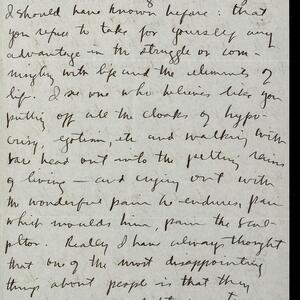 I should have known before: that
you refuse to take for yourself any
advantage in the struggle or com-
mingling with life and the elements of
life. I see one who believes like you
putting off all the cloaks of hypo-
crisy, egotism, etc and walking with
bare head out into the pelting rains
of living — and crying out with
the wonderful pain he endures, pain
which moulds him, pain the sculp-
ptor. Really I have always thought
that one of the most disappointing
things about people is that they